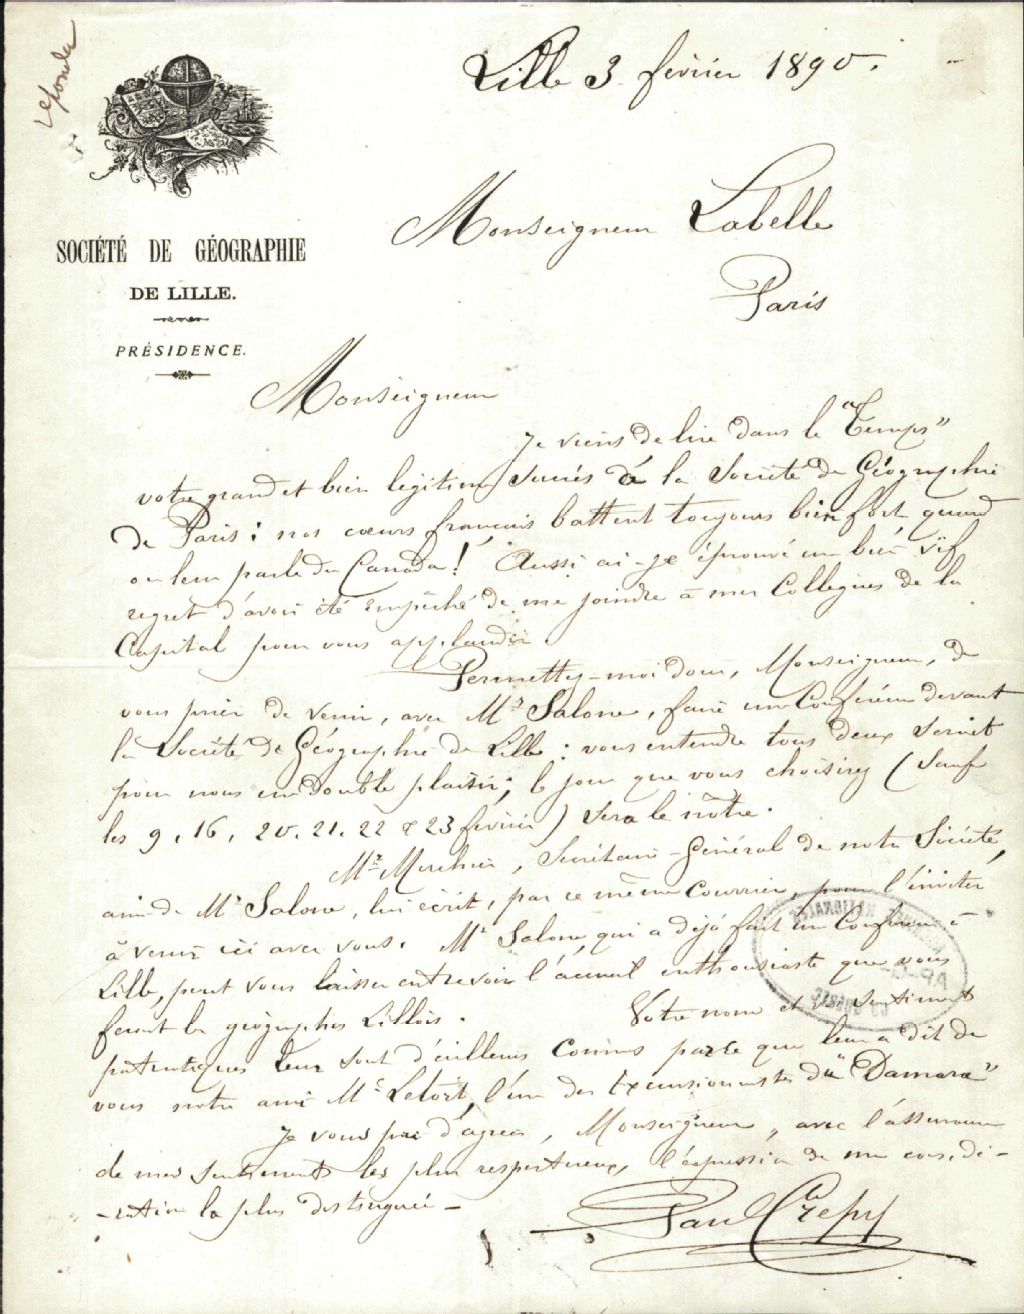 répondu
Lille 3 février 1890.
SOCIÉTÉ DE GÉOGRAPHIE
DE LILLE.
PRÉSIDENCE.
Monseigneur Labelle
Paris
Monseigneur
Je viens de lire dans le "Temps"
votre grand et bien légitime succès à la Société de Géographie
de Paris : nos cœurs français battent toujours bien fort quand
on leur parle du Canada ! Aussi ai-je éprouvé un bien vif
regret d'avoir été empêché de me joindre à mes Collègues de la
Capital pour vous applaudir.
Permettez-moi donc, Monseigneur, de
vous prier de venir, avec Mr Salone, faire une Conférence devant
la Société de Géographie de Lille : vous entendre tous deux serait
pour nous un double plaisir ; le jour que vous choisirez (sauf
les 9, 16, 20, 21, 22 & 23 février) sera le nôtre.
Mr Merchier, Secrétaire-Général de notre Société,
ami de Mr Salone, lui écrit, par ce même Courrier, pour l'inviter
à venir ici avec vous. Mr Salone, qui a déjà fait une Conférence à
Lille, peut vous laisser entrevoir l'accueil enthousiaste que vous
feront les géographes Lillois. Votre nom et vos sentiments
patriotiques leur sont d'ailleurs connus parce que leur a dit de
vous notre ami Mr Letort, l'un des Excursionnistes du "Damara"
Je vous prie d'agréer, Monseigneur, avec l'assurance
de mes sentiments les plus respectueux, l'expression de ma consi-
-dération la plus distinguée -
Paul Crepy